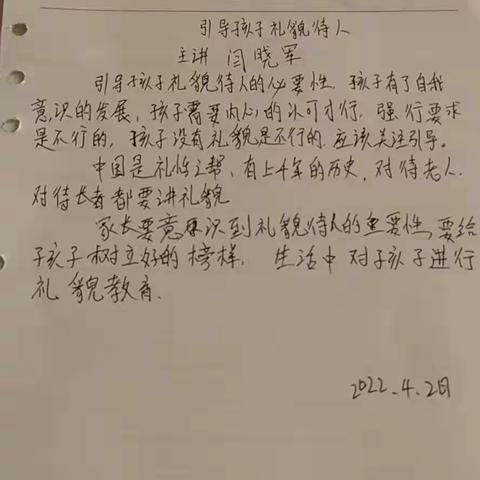 引导孩子礼貌待人
主讲 闫晓军
引导孩子礼貌待人的必要性.孩子有了自我
意识的发展,孩子需要内心的认可才行,强行要求
是不行的,孩子没有礼貌是不行的.应该关注引导。
中国是礼仪之帮、有上千年的历史,对待老人.
对待长者都要讲礼貌
家长要意识到礼貌待人的重要性,要给
孩子树立好的榜样, 生活中对孩子进行
礼貌教育.
2022.4.2日